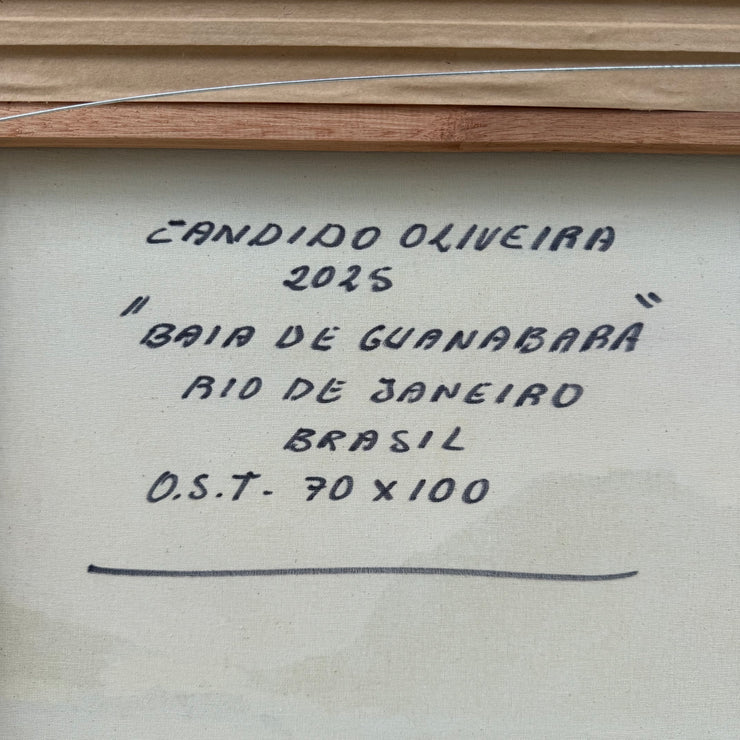 CANDIDO OLIVEIRA
2025
"BAIA DE GUANABARA"
RIO DE JANEIRO
BRASIL
O.S.T. - 70 X 100